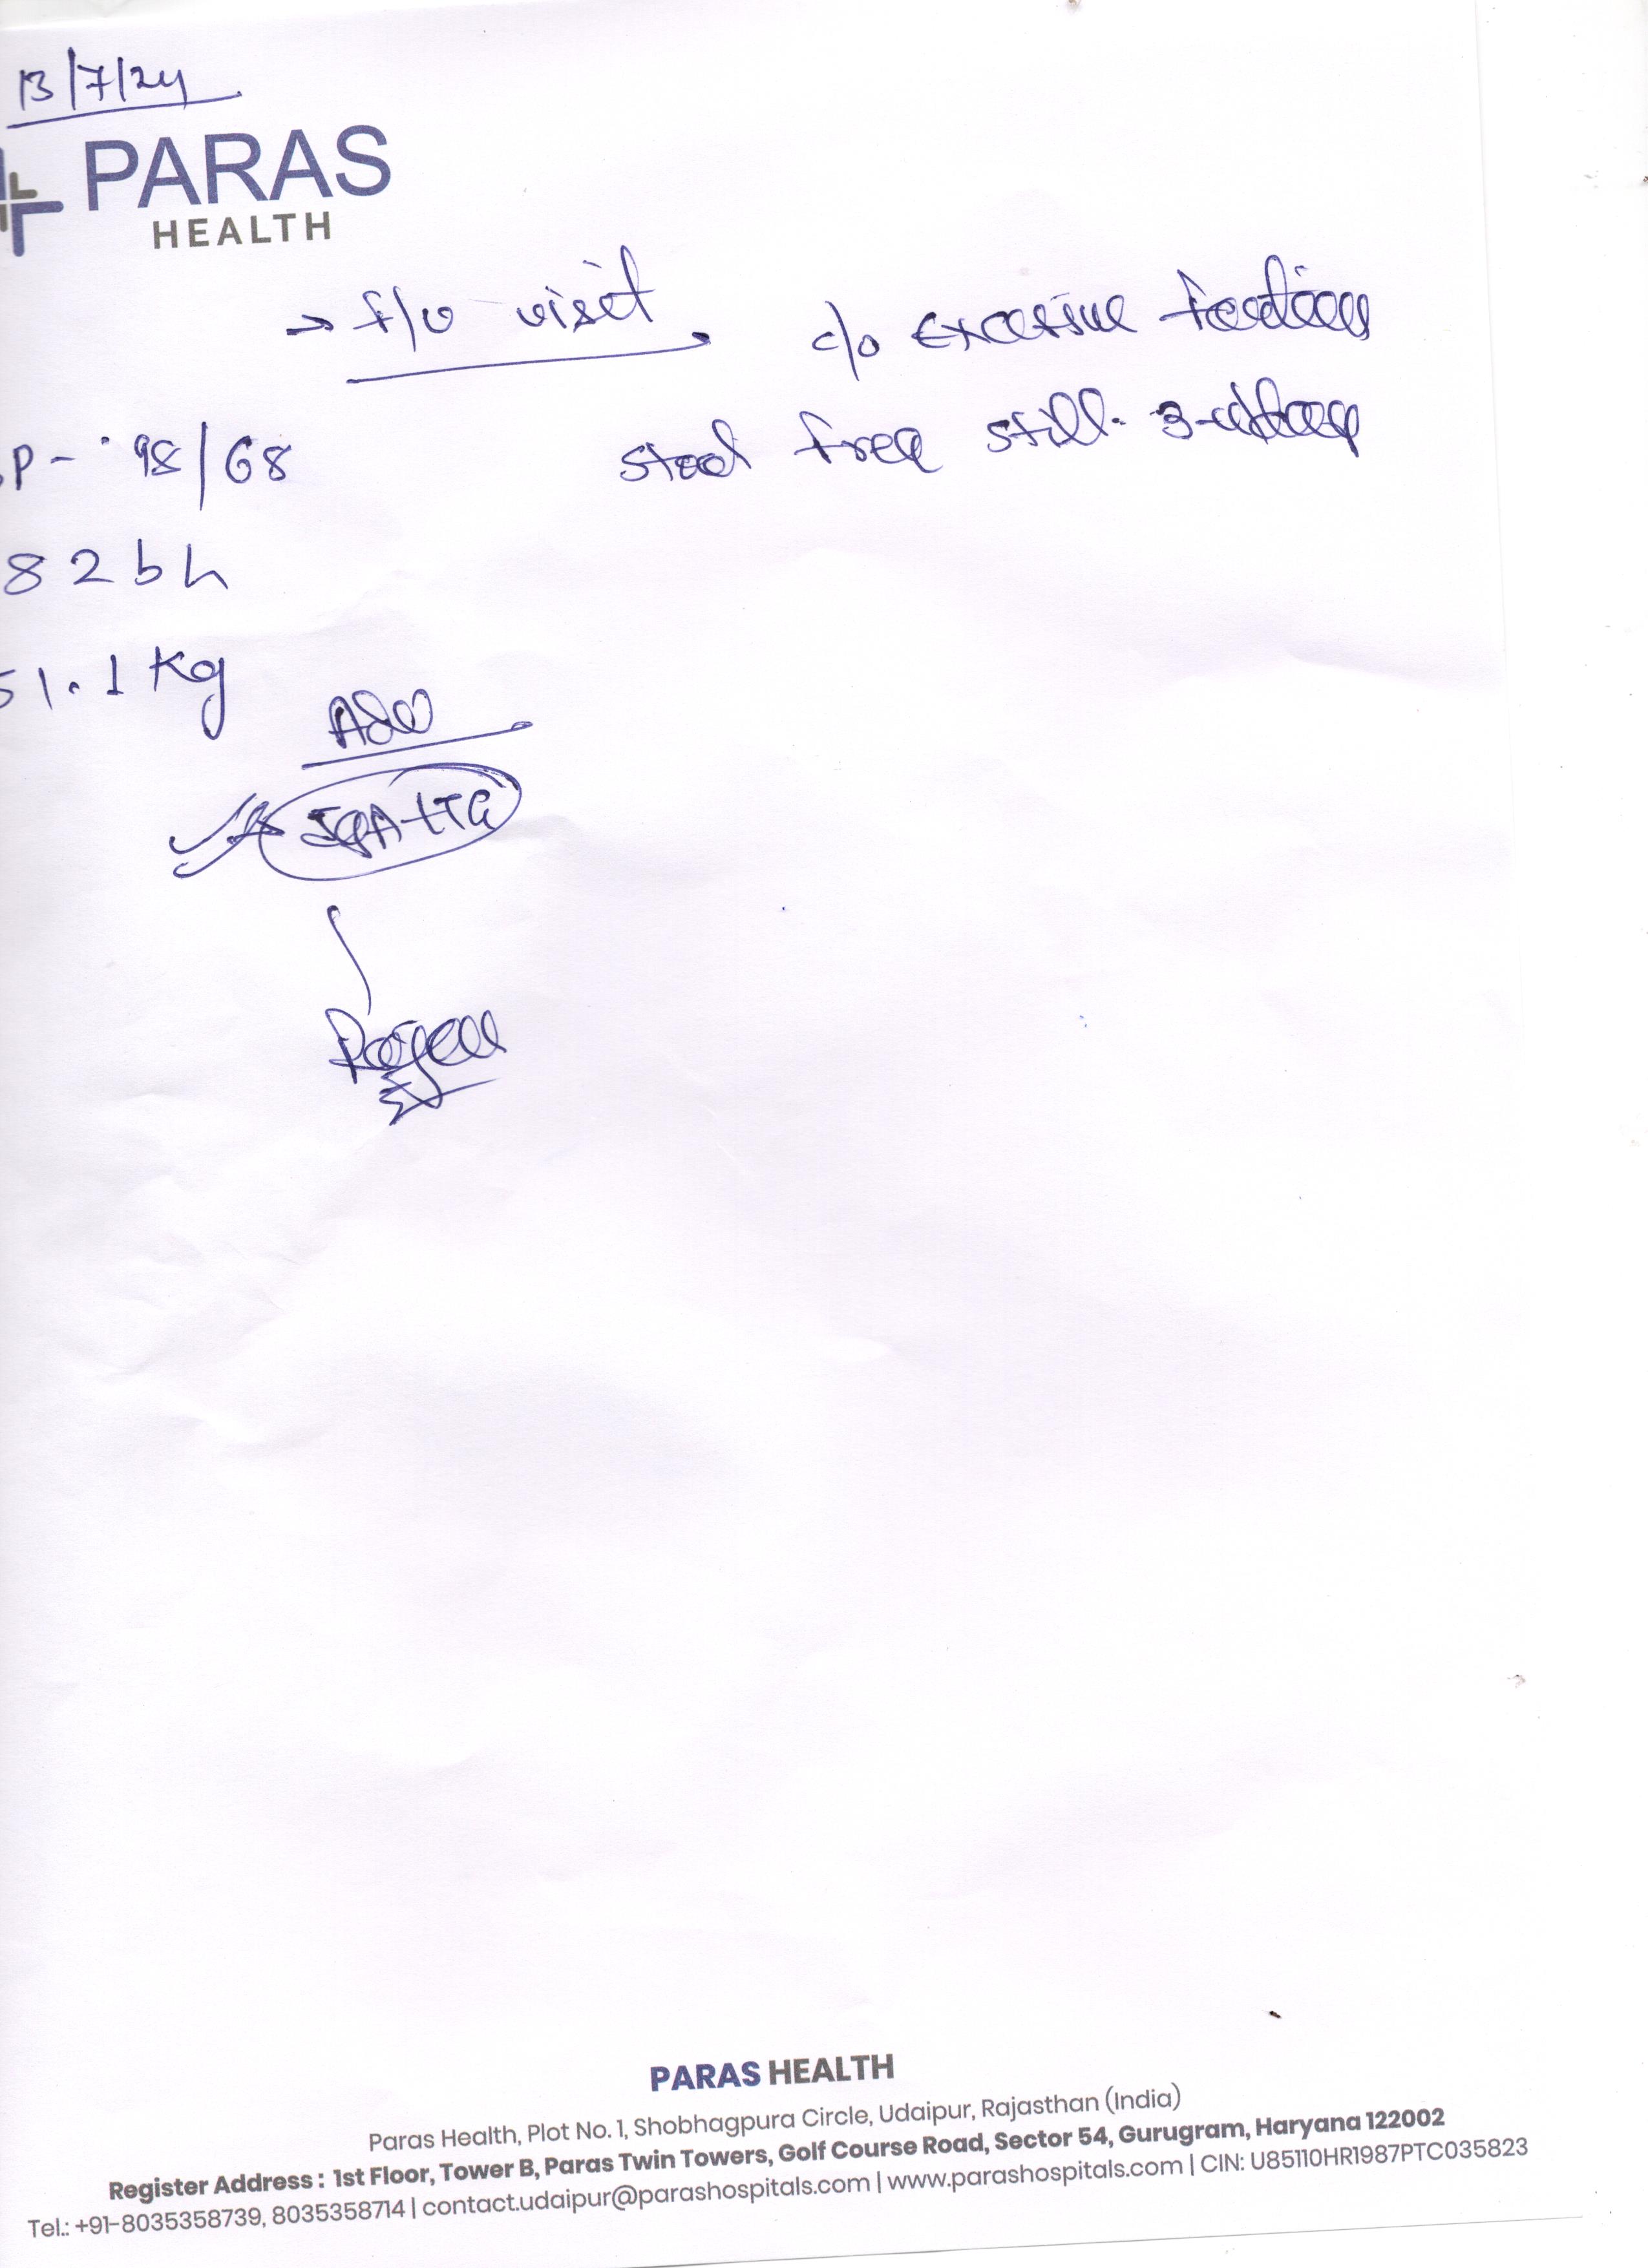 13/7/24
PARAS
HEALTH
→ f/u visit
c/o Excessive
P - 98/68
stool freq still 3-4/day
82 b
51.1 Kg
Adv
IgA-tTG
PARAS HEALTH
Paras Health, Plot No. 1, Shobhagpura Circle, Udaipur, Rajasthan (India)
Register Address : 1st Floor, Tower B, Paras Twin Towers, Golf Course Road, Sector 54, Gurugram, Haryana 122002
Tel.: +91-8035358739, 8035358714 | contact.udaipur@parashospitals.com | www.parashospitals.com | CIN: U85110HR1987PTC035823